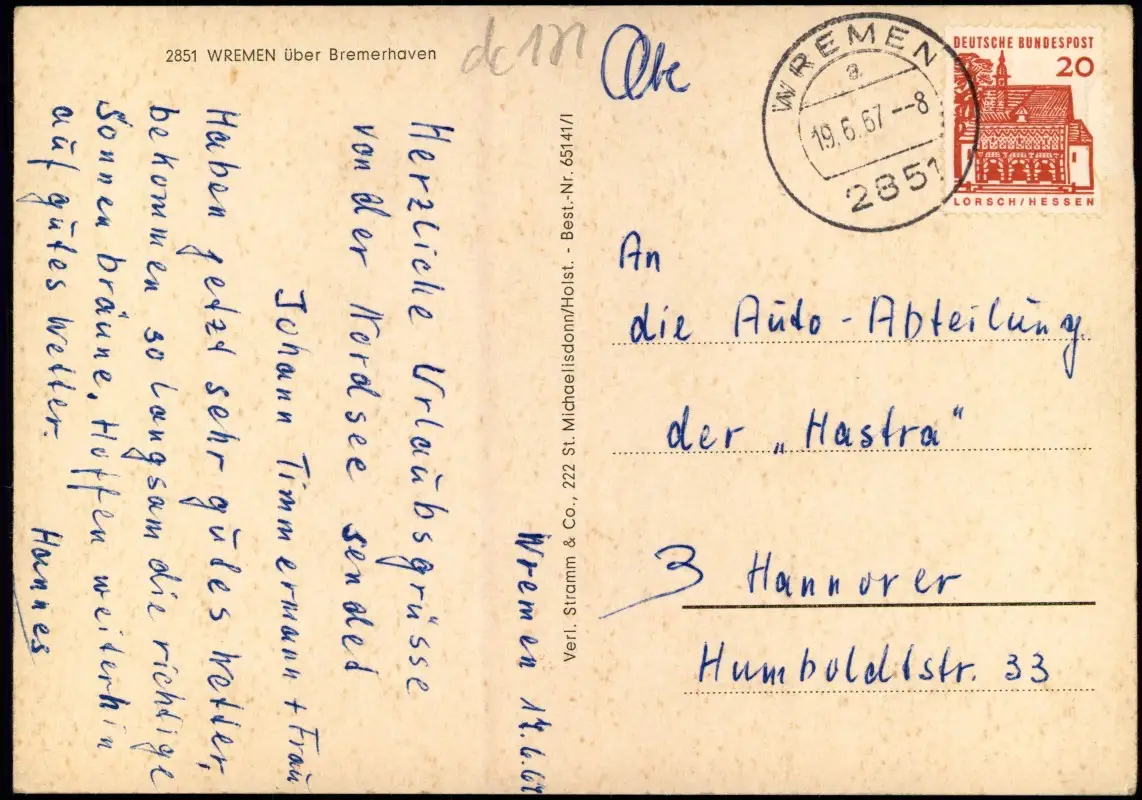 2851 WREMEN über Bremerhaven
Wremen 17.6.67
Herzliche Urlaubsgrüsse
von der Nordsee sendet
Johann Timmermann + Frau
Haben jetzt sehr gutes Wetter,
bekommen so langsam die richtige
Sonnenbräune. Hoffen weiterhin
auf gutes Wetter.
Hannes
Verl. Stramm & Co., 222 St. Michaelisdonn/Holst. - Best.-Nr. 65141/I
WREMEN
a
19.6.67--8
2851
DEUTSCHE BUNDESPOST
20
LORSCH/HESSEN
An
die Auto-Abteilung
der „Hastra"
3 Hannover
Humboldtstr. 33